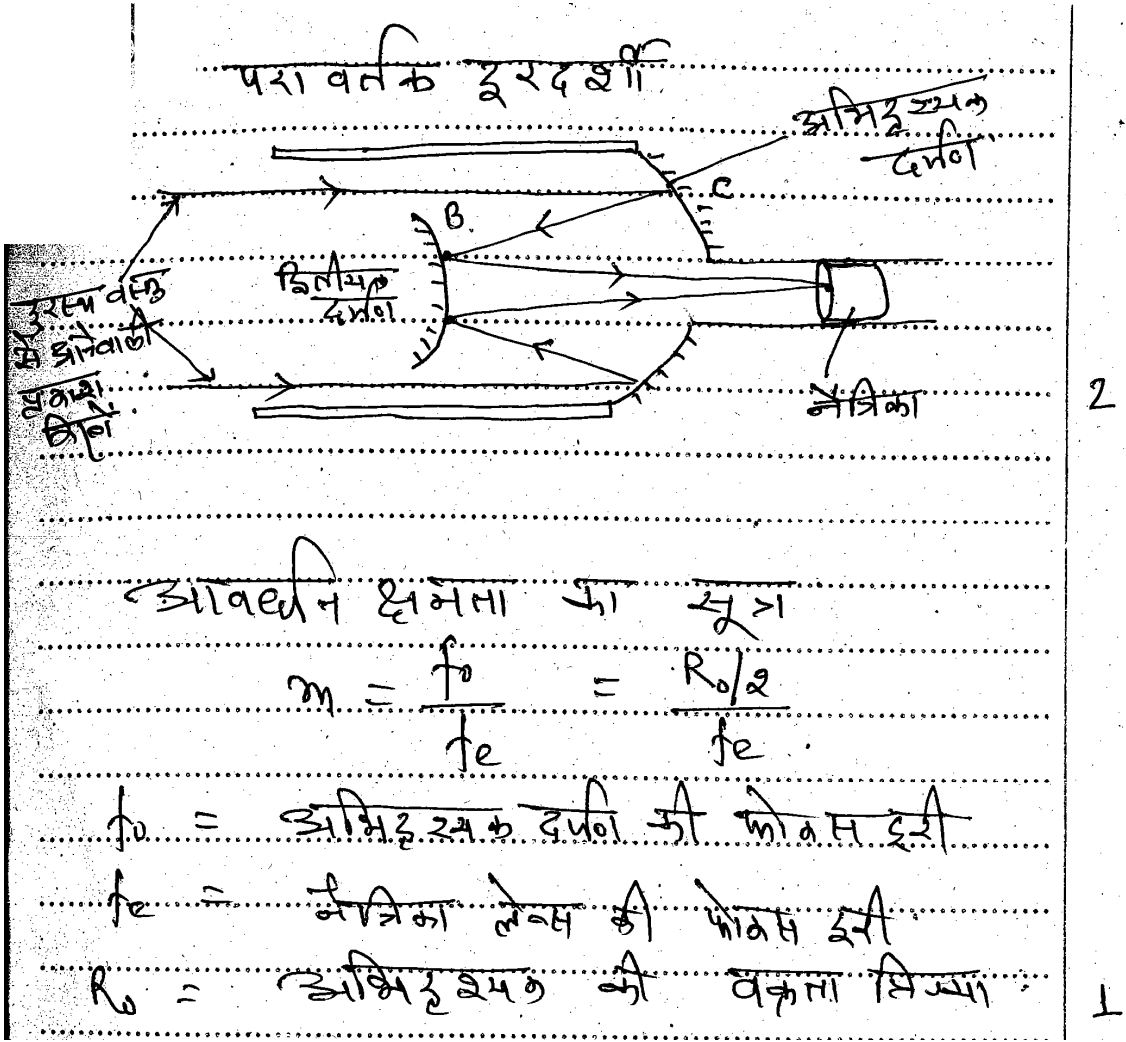 परावर्तक दूरदर्शी
अभिदृश्यक
दर्पण
C
B
द्वितीयक
दर्पण
दूरस्थ वस्तु
से आनेवाली
प्रकाश
किरणें
नेत्रिका
2
आवर्धन क्षमता का सूत्र
m = fo/fe = Ro/2/fe
fo = अभिदृश्यक दर्पण की फोकस दूरी
fe = नेत्रिका लेन्स की फोकस दूरी
Ro = अभिदृश्यक की वक्रता त्रिज्या
1